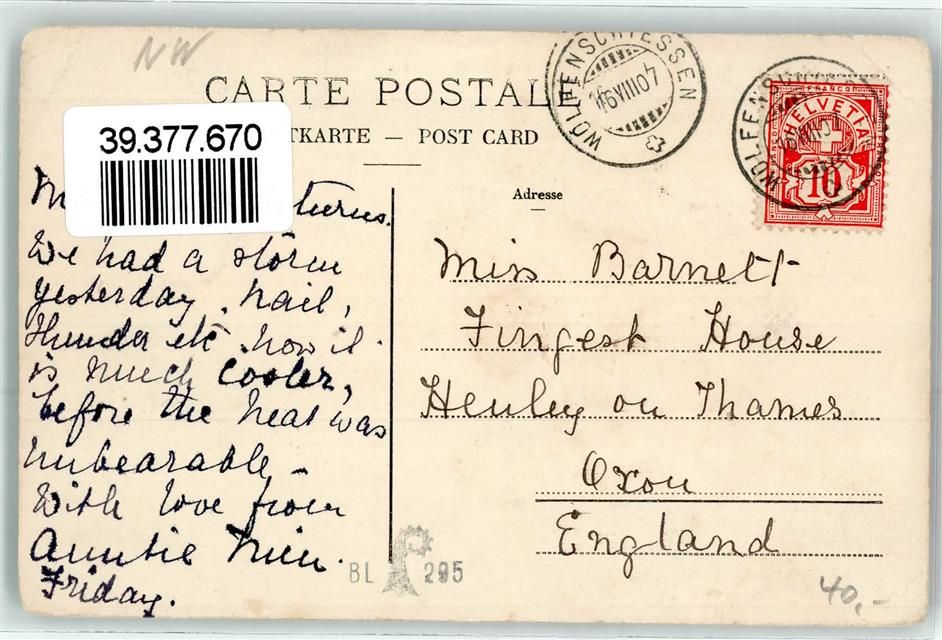 NW
CARTE POSTALE
TKARTE — POST CARD
39.377.670
WOLFENSCHIESSEN
16VIII07
WOLFENSCHIESSEN
FRANCO
HELVETIA
10
Adresse
M
turns.
We had a storm
yesterday, hail,
thunder etc now it
is much cooler,
before the heat was
unbearable –
With love from
Auntie
Friday.
Miss Barnett
Fingest House
Henley on Thames
Oxon
England
BL 295
40,-